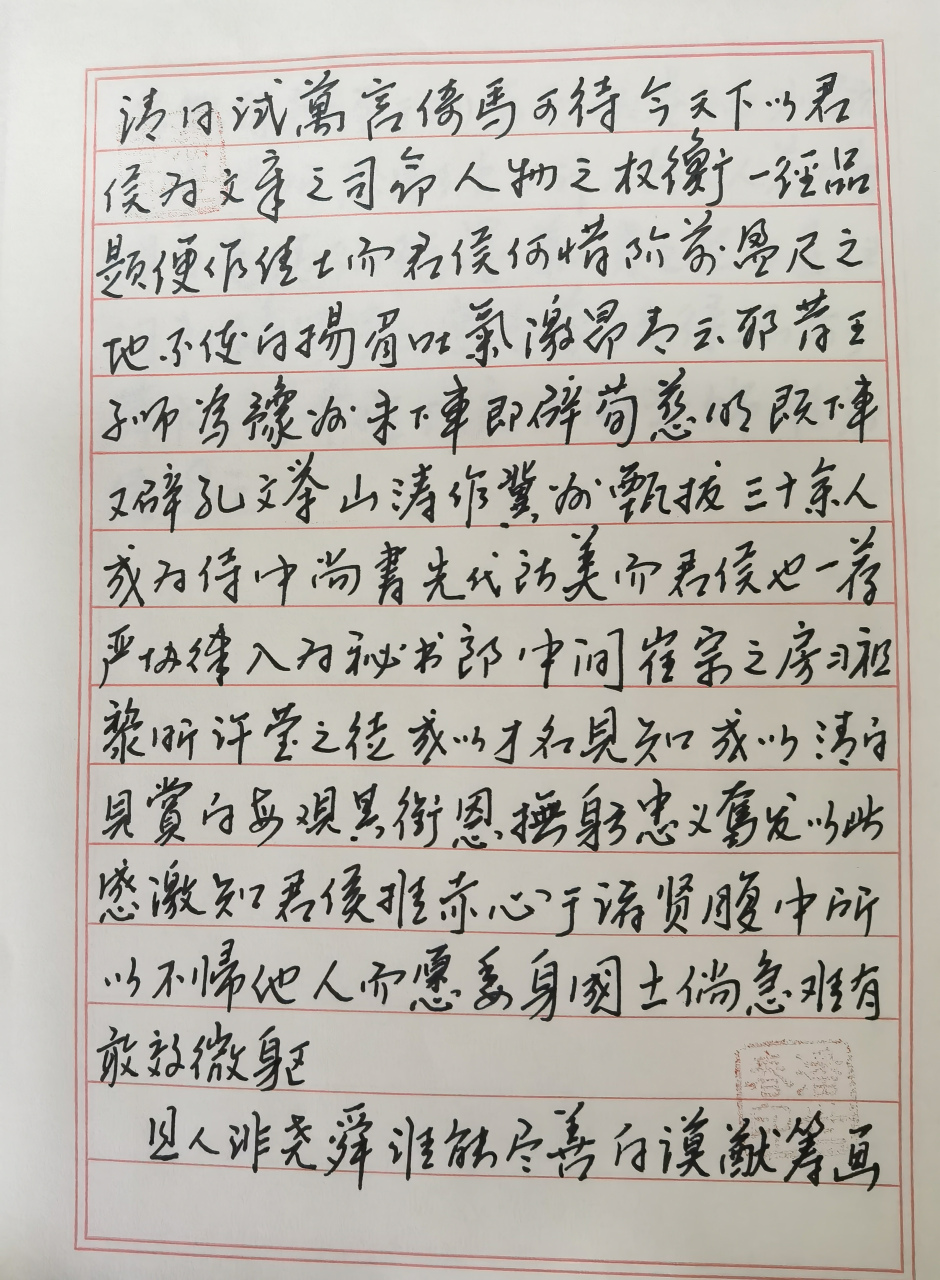 请日试萬言倚馬可待今天下以君
侯为文章之司命人物之权衡一经品
题便作佳士而君侯何惜阶前盈尺之
地不使白揚眉吐氣激昂青云耶昔王
子师為豫州未下車即辟荀慈明既下車
又辟孔文举山涛作冀州甄拔三十余人
或为侍中尚書先代所美而君侯也一荐
严协律入为秘书郎中间崔宗之房习祖
黎昕许莹之徒或以才名見知或以清白
見賞白每观其銜恩撫躬忠义奮发以此
感激知君侯推赤心于诸贤腹中所
以不帰他人而愿委身國士倘急难有
敢效微躯
且人非尧舜谁能尽善白谟猷筹画